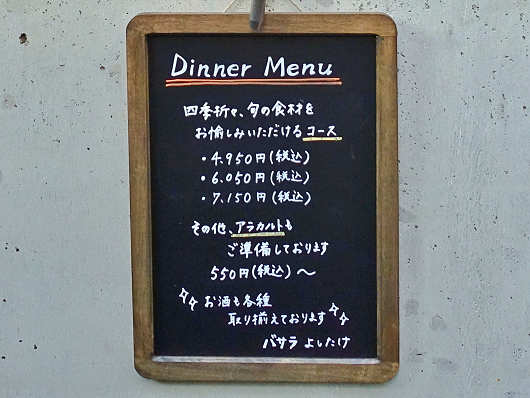 Dinner Menu
四季折々、旬の食材を
お愉しみいただけるコース
・4,950円(税込)
・6,050円(税込)
・7,150円(税込)
その他、アラカルトも
ご準備しております
550円(税込)～
お酒も各種
取り揃えております
バサラ よしたけ